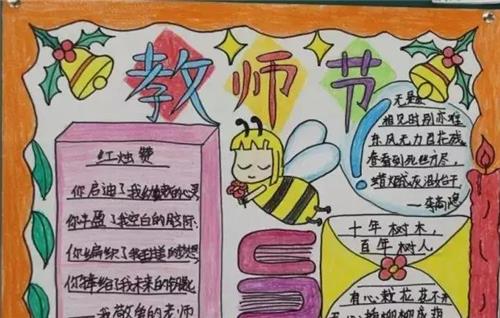 教师节
红烛赞
你启迪了我幼稚的心灵
你丰盈了我空白的脑际
你编织了我的梦想
你捧给了我未来的钥匙
——我敬爱的老师
无题
相见时别亦难
东风无力百花残
春蚕到死丝方尽，
蜡炬成灰泪始干
——李商隐
十年树木，
百年树人．
有心栽花花不开